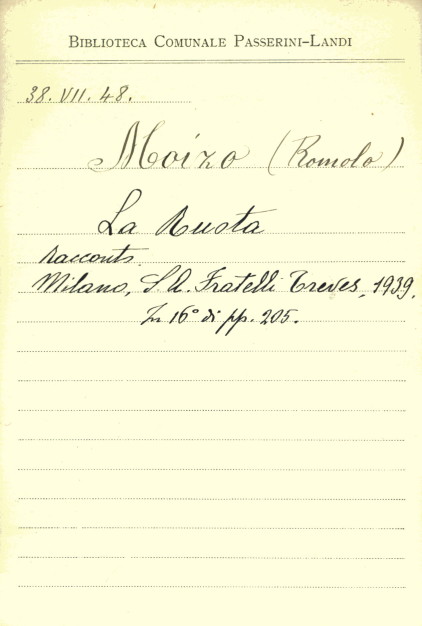 BIBLIOTECA COMUNALE PASSERINI-LANDI
38. VII. 48.
Moizo (Romolo)
La Busta
racconti.
Milano, S. A. Fratelli Treves, 1939.
In 16° di pp. 205.